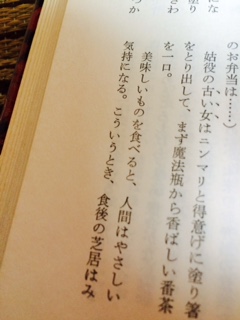 にな
塗り
さわ
つか
のお弁当は……)
姑役の古い女はニンマリと得意げに塗り箸
をとり出して、まず魔法瓶から香ばしい番茶
を一口。
美味しいものを食べると、人間はやさしい
気持になる。こういうとき、食後の芝居はみ